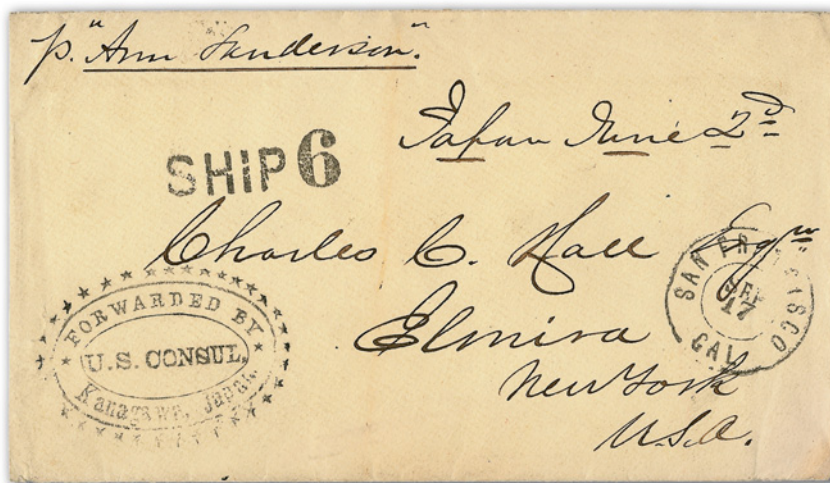 p. "Ann Sanderson".
Japan June 2d
SHiP 6
Charles C. Hall Esqr
Elmira
New York
U.S.A.
FORWARDED BY
U.S. CONSUL.
Kanagawa, Japan.
SAN FRANCISCO
SEP
17
CAL